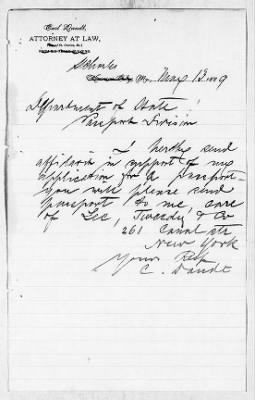 Carl Daudt,
ATTORNEY AT LAW,
St Charles
Mo. May 13 1889
Department of State
Passport Division
I hereby send
affidavit in support of my
application for a Passport
you will please send
passport to me, care
of Lee, Tweedy & Co
261 Canal str
New York
Yours Resp
C. Daudt